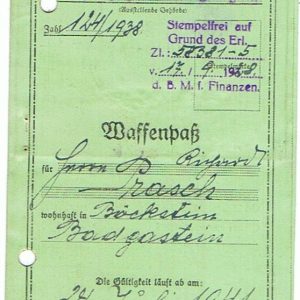 (Ausstellende Behörde)
Zahl 124/1938
Stempelfrei auf
Grund des Erl.
Zl.: 58381-5
v. 17/9 1933
d. B. M. f. Finanzen.
Waffenpaß
für Herrn Richard
Prasch
wohnhaft in Böckstein
Badgastein
Die Gültigkeit läuft ab am:
1941